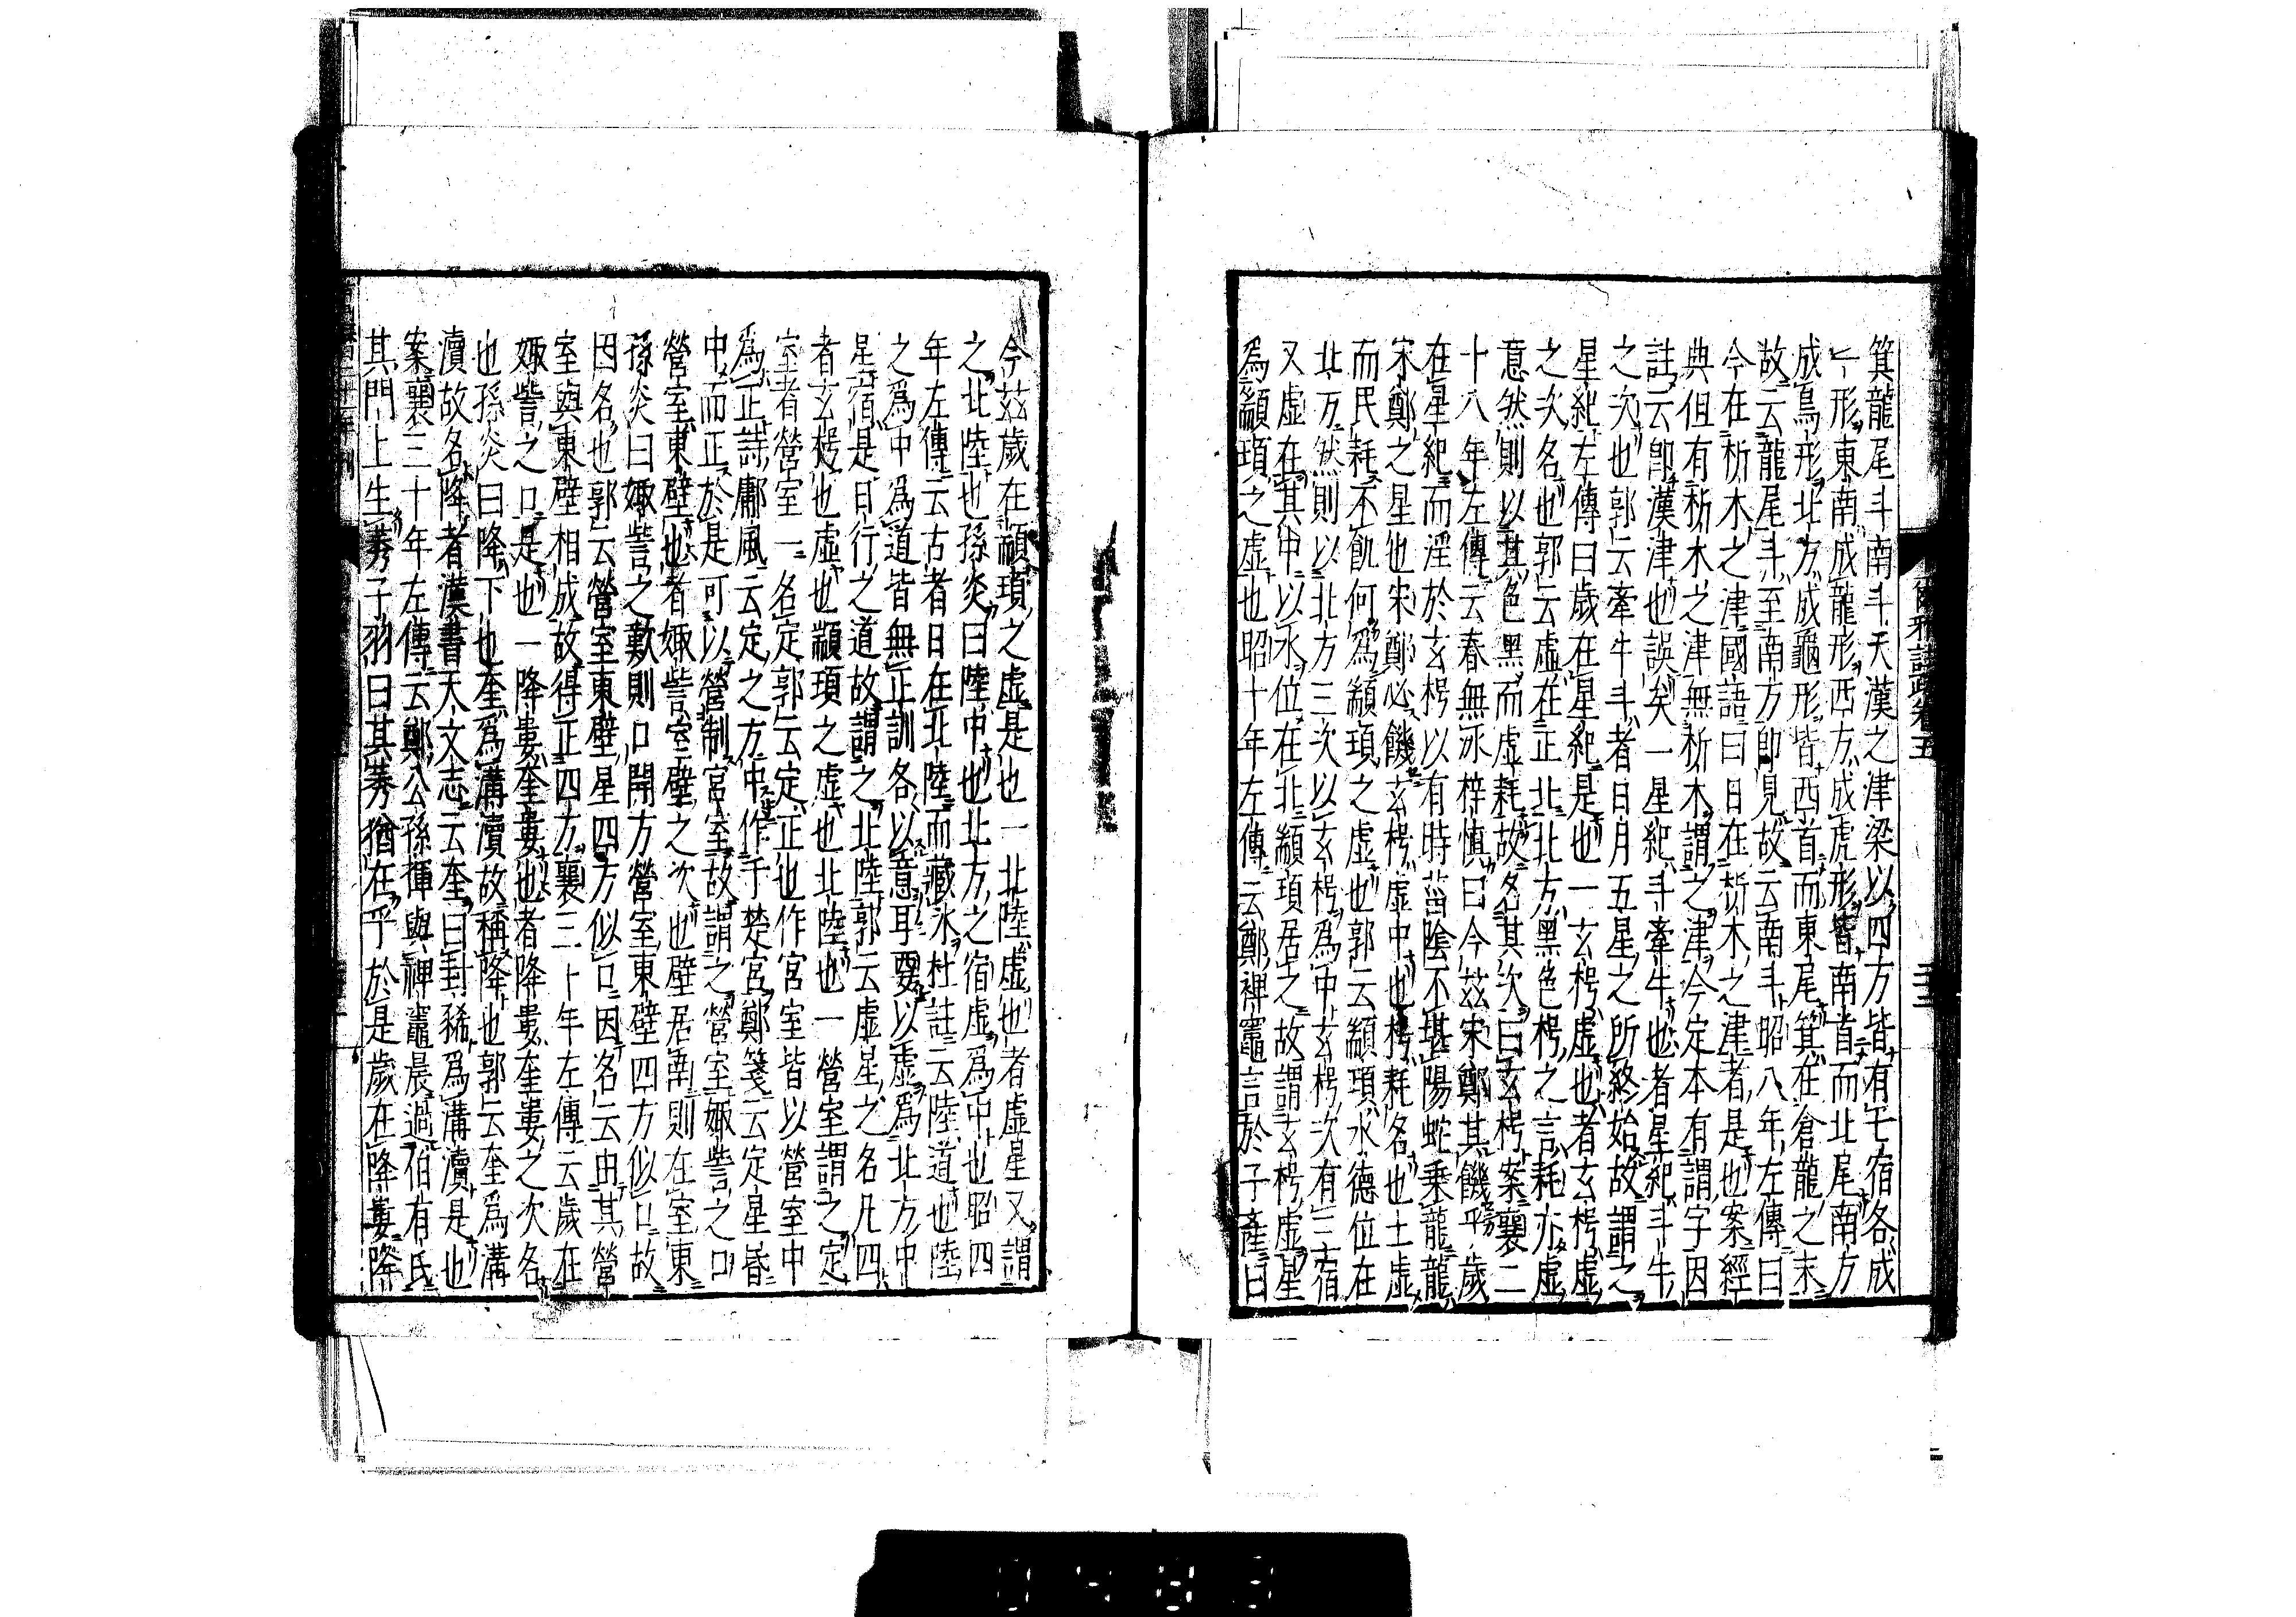 箕龍尾斗南斗天漢之津梁以四方皆有七宿各成
一形東南成龍形西方成虎形皆南首而北尾南方
成鳥形北方成龜形皆西首而東尾箕在倉龍之末
故云龍尾斗至南方即見故云南斗昭八年左傳曰
今在析木之津國語曰日在析木之津者是也案經
典但有析木之津無析木謂之津今定本有謂字因
註云即漢津也誤矣一星紀斗牽牛也者星紀斗牛
之次也郭云牽牛斗者日月五星之所終始故謂之
星紀左傳曰歲在星紀是也一玄枵虛也者玄枵虛
之次名也郭云虛在正北北方黑色枵之言耗亦虛
意然則以其色黑而虛耗故名其次曰玄枵案襄二
十八年左傳云春無冰梓慎曰今茲宋鄭其饑乎歲
在星紀而淫於玄枵以有時菑陰不堪陽蛇乘龍龍
宋鄭之星也宋鄭必饑玄枵虛中也枵耗名也土虛
而民耗不飢何爲顓頊之虛也郭云顓頊水德位在
北方然則以北方三次以玄枵爲中玄枵次有三宿
又虛在其中以水位在北顓頊居之故謂玄枵虛星
爲顓頊之虛也昭十年左傳云鄭裨竈言於子產曰
爾雅註疏卷五
今茲歲在顓頊之虛是也一北陸虛也者虛星又謂
之北陸也孫炎曰陸中也北方之宿虛爲中也昭四
年左傳云古者日在北陸而藏冰杜註云陸道也陸
之爲中爲道皆無正訓各以意耳要以虛爲北方中
星宿是日行之道故謂之北陸郭云虛星之名凡四
者玄枵也虛也顓頊之虛也北陸也一營室謂之定
室者營室一名定郭云定正也作宮室皆以營室中
爲正詩鄘風云定之方中作于楚宮鄭箋云定星昏
中而正於是可以營制宮室故謂之營室娵訾之口
營室東壁也者娵訾室壁之次也壁居南則在室東
孫炎曰娵訾之歎則口開方營室東壁四方似口故
因名也郭云營室東壁星四方似口因名云由其營
室與東壁相成故得正四方襄三十年左傳云歲在
娵訾之口是也一降婁奎婁也者降婁奎婁之次名
也孫炎曰降下也奎爲溝瀆故稱降也郭云奎爲溝
瀆故名降者漢書天文志云奎曰封豨爲溝瀆是也
案襄三十年左傳云鄭公孫揮與裨竈晨過伯有氏
其門上生莠子羽曰其莠猶在乎於是歲在降婁降